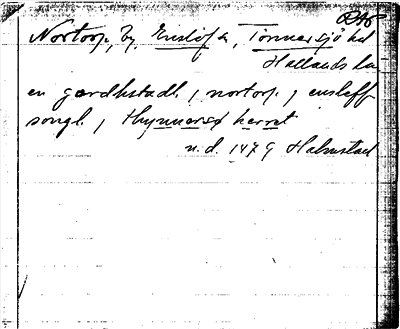 DAO
Nortorp, by Enslöfs sn, Tönnersjö hd
Hallands län
en gardhstadh j nortorp j ensleff
songh j thynnersö herret
u. d. 1479 Halmstad